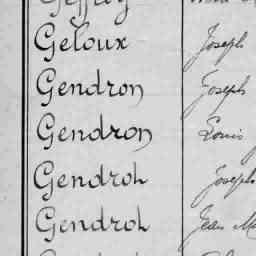 Geffroy
Geloux Joseph
Gendron Joseph
Gendron Louis
Gendroh Joseph
Gendroh Jean